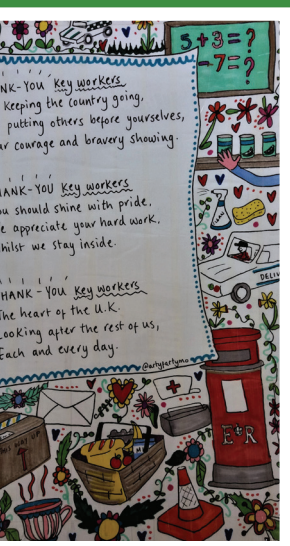 5+3=?
-7=?
NK-YOU key workers
Keeping the country going,
putting others before yourselves,
ur courage and bravery showing.
HANK-YOU key workers
ou should shine with pride,
e appreciate your hard work,
hilst we stay inside.
HANK-YOU key workers
The heart of the U.K.
Looking after the rest of us,
Each and every day.
@artyfartymo
DELIV
E R
THIS WAY UP